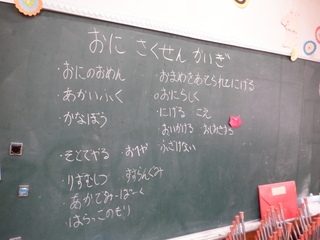 おに さくせん かいぎ
・おにのおめん
・あかいふく
・かなぼう
・おまめをあてられてにげる
○おにらしく
・にげる こえ
・おいかける
・ふざけない
・そとでやる
・りすむしつ
・あかでみーぱーく
・はらっこのもり